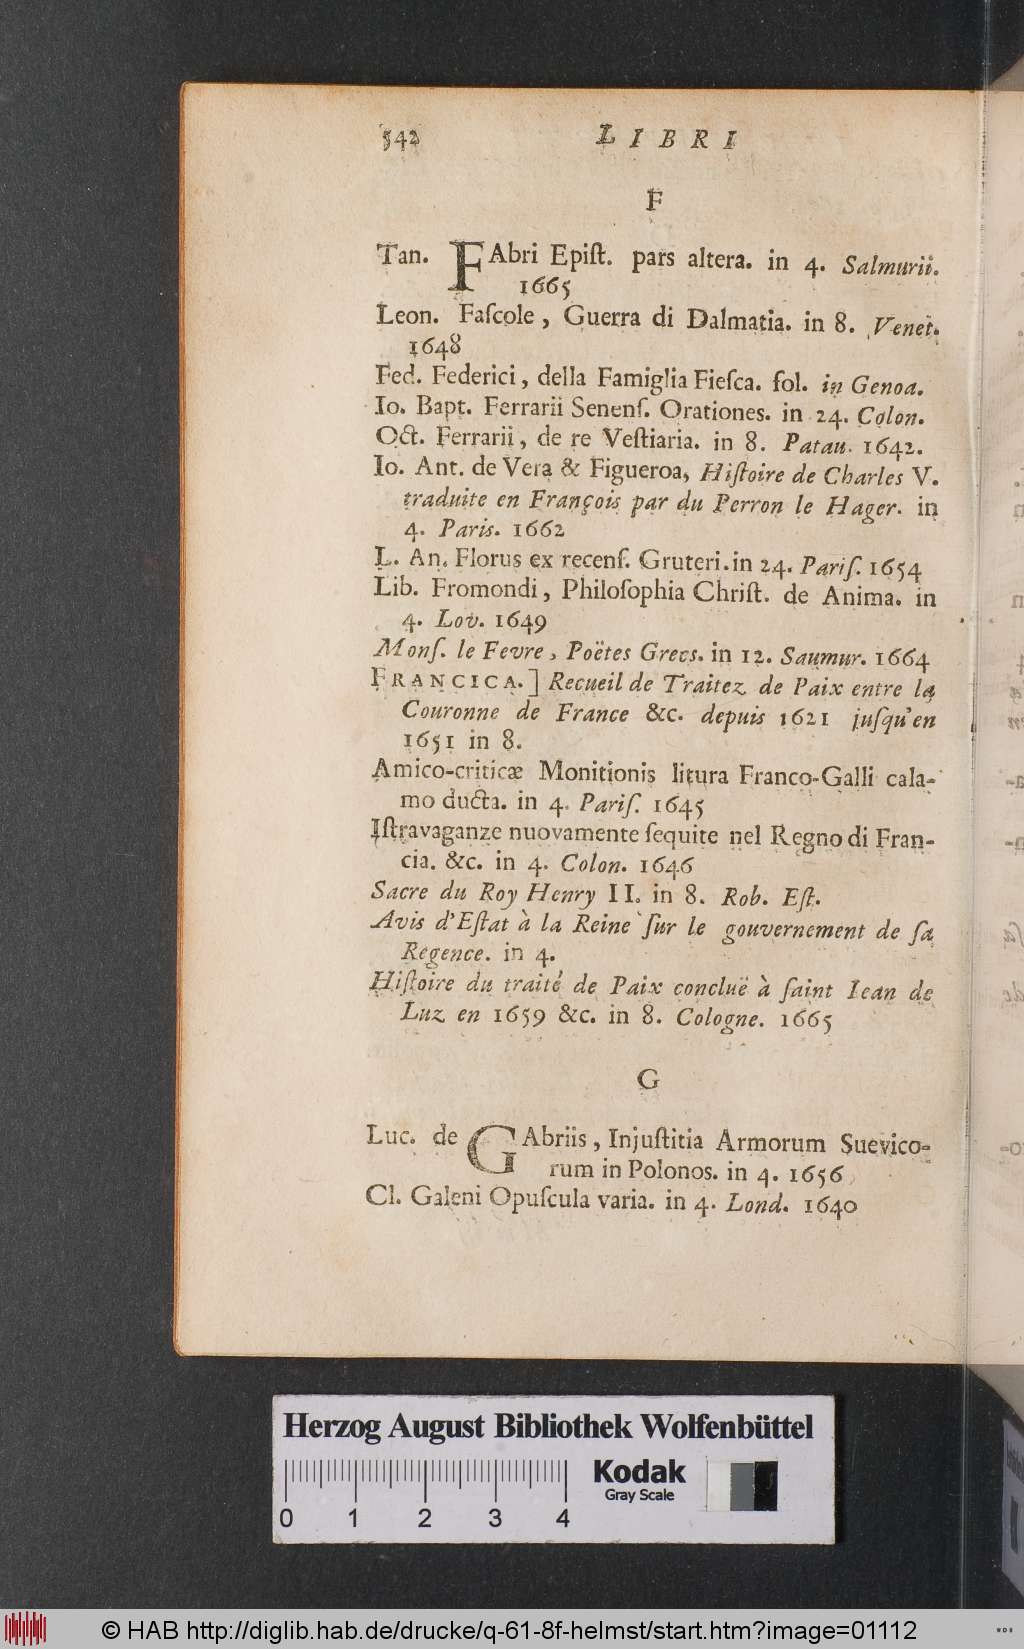 542 LIBRI
F
Tan. FAbri Epiſt. pars altera. in 4. Salmurii.
1665
Leon. Faſcole, Guerra di Dalmatia. in 8. Venet.
1648
Fed. Federici, della Famiglia Fieſca. fol. in Genoa.
Io. Bapt. Ferrarii Senenſ. Orationes. in 24. Colon.
Oct. Ferrarii, de re Veſtiaria. in 8. Patau. 1642.
Io. Ant. de Vera & Figueroa, Hiſtoire de Charles V.
traduite en François par du Perron le Hager. in
4. Paris. 1662
L. An. Florus ex recenſ. Gruteri. in 24. Pariſ. 1654
Lib. Fromondi, Philoſophia Chriſt. de Anima. in
4. Lov. 1649
Monſ. le Fevre, Poëtes Grecs. in 12. Saumur. 1664
FRANCICA.] Recueil de Traitez de Paix entre la
Couronne de France &c. depuis 1621 juſqu'en
1651 in 8.
Amico-criticæ Monitionis litura Franco-Galli cala-
mo ducta. in 4. Pariſ. 1645
Iſtravaganze nuovamente ſequite nel Regno di Fran-
cia. &c. in 4. Colon. 1646
Sacre du Roy Henry II. in 8. Rob. Eſt.
Avis d'Eſtat à la Reine ſur le gouvernement de ſa
Regence. in 4.
Hiſtoire du traité de Paix concluë à ſaint Iean de
Luz en 1659 &c. in 8. Cologne. 1665
G
Luc. de GAbriis, Injuſtitia Armorum Suevico-
rum in Polonos. in 4. 1656
Cl. Galeni Opuſcula varia. in 4. Lond. 1640
Herzog August Bibliothek Wolfenbüttel
Kodak
Gray Scale
0 1 2 3 4
© HAB http://diglib.hab.de/drucke/q-61-8f-helmst/start.htm?image=01112